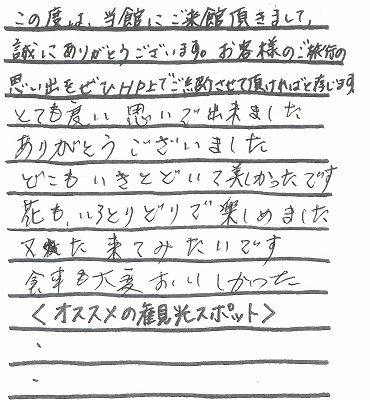 この度は、当館にご来館頂きまして、
誠にありがとうございます。お客様のご旅行の
思い出をぜひHP上でご紹介させて頂ければと存じます
とても良い思いで出来ました
ありがとうございました
どこもいきとどいて美しかったです
花も、いろとりどりで楽しめました
又 来てみたいです
食事も大変おいしかった
＜オススメの観光スポット＞
・
・